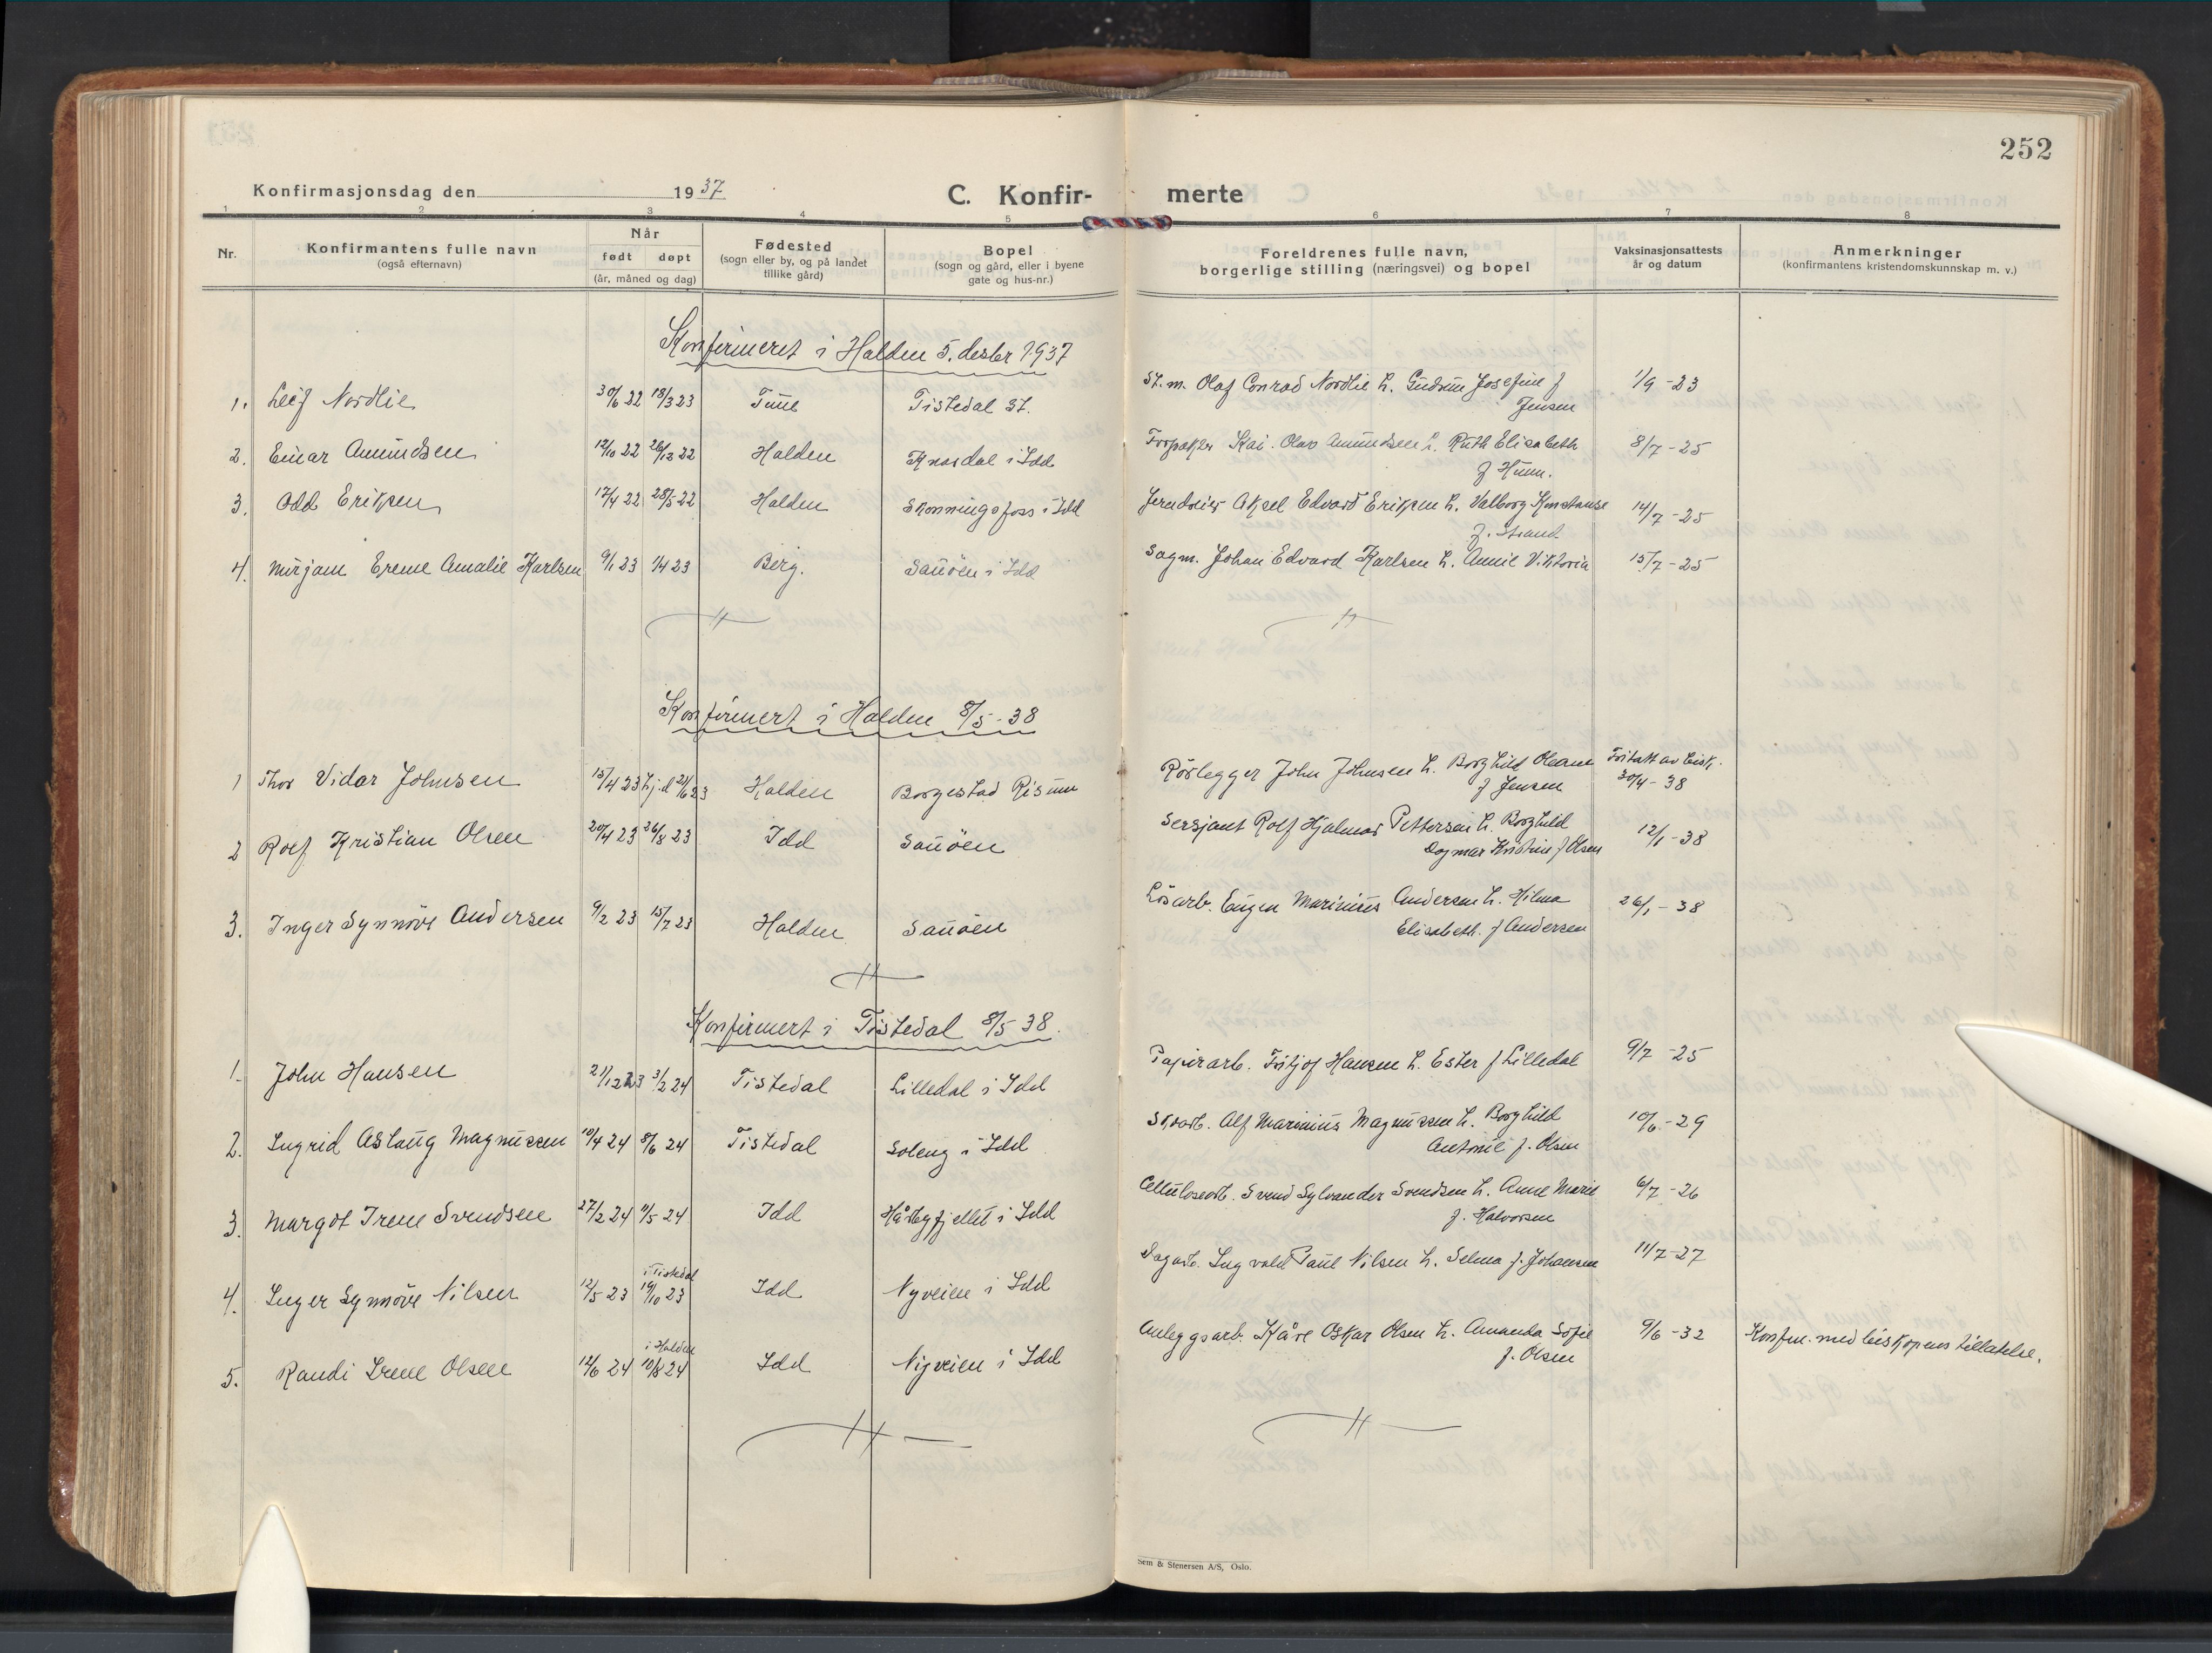 252
Konfirmasjonsdag den 19 37 C. Konfir- merte
1 2 3 4 5 6 7 8
Nr. Konfirmantens fulle navn (også efternavn) Når født døpt (år, måned og dag) Fødested (sogn eller by, og på landet tillike gård) Bopel (sogn og gård, eller i byene gate og hus-nr.) Foreldrenes fulle navn, borgerlige stilling (næringsvei) og bopel Vaksinasjonsattests år og datum Anmerkninger (konfirmantens kristendomskunnskap m. v.)
Konfirmeret i Halden 5. desbr 1937
1. Leif Nordlie 30/6 22 18/3 23 Tune Tistedal St. St. m. Olaf Conrad Nordlie h. Gudrun Josefine f 1/9 - 23
Jensen
2. Einar Amundsen 12/10 22 26/12 22 Halden Knardal i Idd Kai Olav Amundsen h. Ruth Elisabeth 8/7 - 25
f Hunn.
3. Odd Eriksen 17/4 22 28/5 22 Halden Skonningsfoss i Idd Jerndreier Aksel Edvard Eriksen h. Valborg Konstanse 14/7 - 25
f. Strand
4. Mirjam Erene Amalie Karlsen 9/1 23 1/4 23 Berg. Sauöen i Idd Sagm. Johan Edvard Karlsen h. Annie Viktoria 15/7 - 25
Konfirmert i Halden 8/5 - 38
1 Thor Vidar Johnsen 15/4 23 hj.d 21/6 23 Halden Borgestad Risum Rörlegger John Johnsen h. Borghild Oleane Fritatt av bisk.
f Jensen 30/4 - 38
2 Rolf Kristian Olsen 20/4 23 26/8 23 Idd Sauöen Sersjant Rolf Hjalmar Pettersen h. Borghild 12/1 - 38
Dagmar Kristine f Olsen
3. Inger Synnöve Andersen 9/2 23 15/7 23 Halden Sauöen Lösarb. Eugen Marinius Andersen h. Hilma 26/1 - 38
Elisabeth. f Andersen
Konfirmert i Tistedal 8/5 38.
1. John Hansen 21/12 23 3/2 24 Tistedal Lilledal i Idd Papirarb. Fritjof Hansen h. Ester f Lilledal 9/7 - 25
2. Ingrid Aslaug Magnussen 10/4 24 8/6 24 Tistedal Soleng i Idd Alf Marinius Magnussen h. Borghild 10/6 - 29
Antonie f. Olsen
3. Margot Irene Svendsen 27/2 24 11/5 24 Idd Håbyfjellet i Idd Celluloseaarb. Svend Sylvander Svendsen h. Anne Marie 6/7 - 26
f. Halvorsen
i Tistedal
4. Inger Synnöve Nilsen 12/5 23 19/10 23 Idd Nyveien i Idd Sagarb. Ingvald Paul Nilsen h. Selma f. Johansen 11/7 - 27
i Halden
5. Randi Irene Olsen 12/6 24 10/8 24 Idd Nyveien i Idd Anleggsarb. Kåre Oskar Olsen h. Amanda Sofie 9/6 - 32 Konfm. med biskopens tillatelse.
f. Olsen
Sem & Stenersen A/S, Oslo.